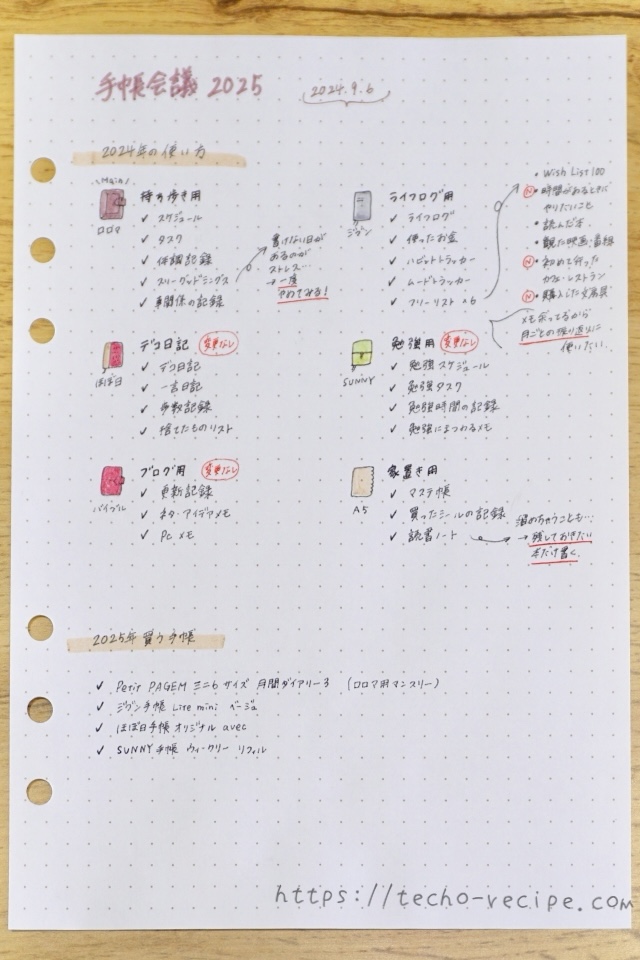 手帳会議 2025
2024.9.6
2024年の使い方
\Main/
ロロマ
持ち歩き用
✓ スケジュール
✓ タスク
✓ 体調記録
✓ スリーグッドシングス
✓ 事関係の記録
書けない日が
あるのが
ストレス…
→ 一度
やめてみる!
ジブン
ライフログ用
✓ ライフログ
✓ 使ったお金
✓ ハビットトラッカー
✓ ムードトラッカー
✓ フリーリスト ^6
・Wish List 100
Ⓝ 時間があるときに
やりたいこと
・読んだ本
・観た映画・番組
Ⓝ 初めて行った
カフェ・レストラン
Ⓝ 購入した文房具
メモ余ってるから
月ごとの振り返りに
使いたい
ほぼ日
デコ日記
変更なし
✓ デコ日記
✓ 一言日記
✓ 歩数記録
✓ 捨てたものリスト
SUNNY
勉強用
変更なし
✓ 勉強スケジュール
✓ 勉強タスク
✓ 勉強時間の記録
✓ 勉強にまつわるメモ
バイブル
ブログ用
変更なし
✓ 更新記録
✓ ネタ・アイデアメモ
✓ PCメモ
A5
家置き用
✓ マステ帳
✓ 買ったシールの記録
✓ 読書ノート
溜めちゃうことも…
→ 残しておきたい
本だけ書く
2025年 買う手帳
✓ Petit PAGEM ミニ6サイズ 月間ダイアリー3 (ロロマ用マンスリー)
✓ ジブン手帳 Lite mini ベージュ
✓ ほぼ日手帳 オリジナル avec
✓ SUNNY手帳 ウィークリー リフィル
https://techo-recipe.com